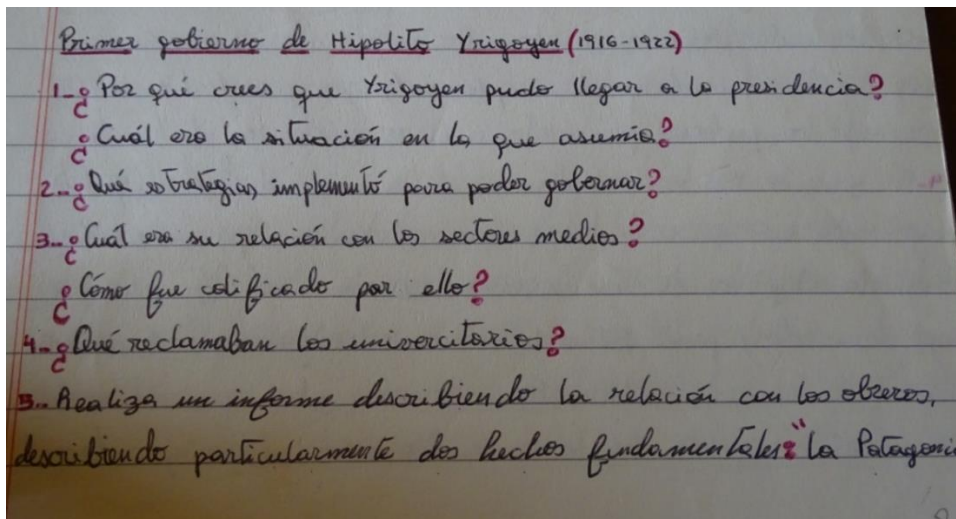 Primer gobierno de Hipolito Yrigoyen (1916-1922)
1-¿Por qué crees que Yrigoyen pudo llegar a la presidencia?
¿Cuál era la situación en la que asumía?
2-¿Qué estrategias implementó para poder gobernar?
3-¿Cuál era su relación con los sectores medios?
¿Cómo fue calificado por ello?
4-¿Qué reclamaban los univercitarios?
5-Realiza un informe describiendo la relación con los obreros,
describiendo particularmente dos hechos fundamentales: "la Patagoni